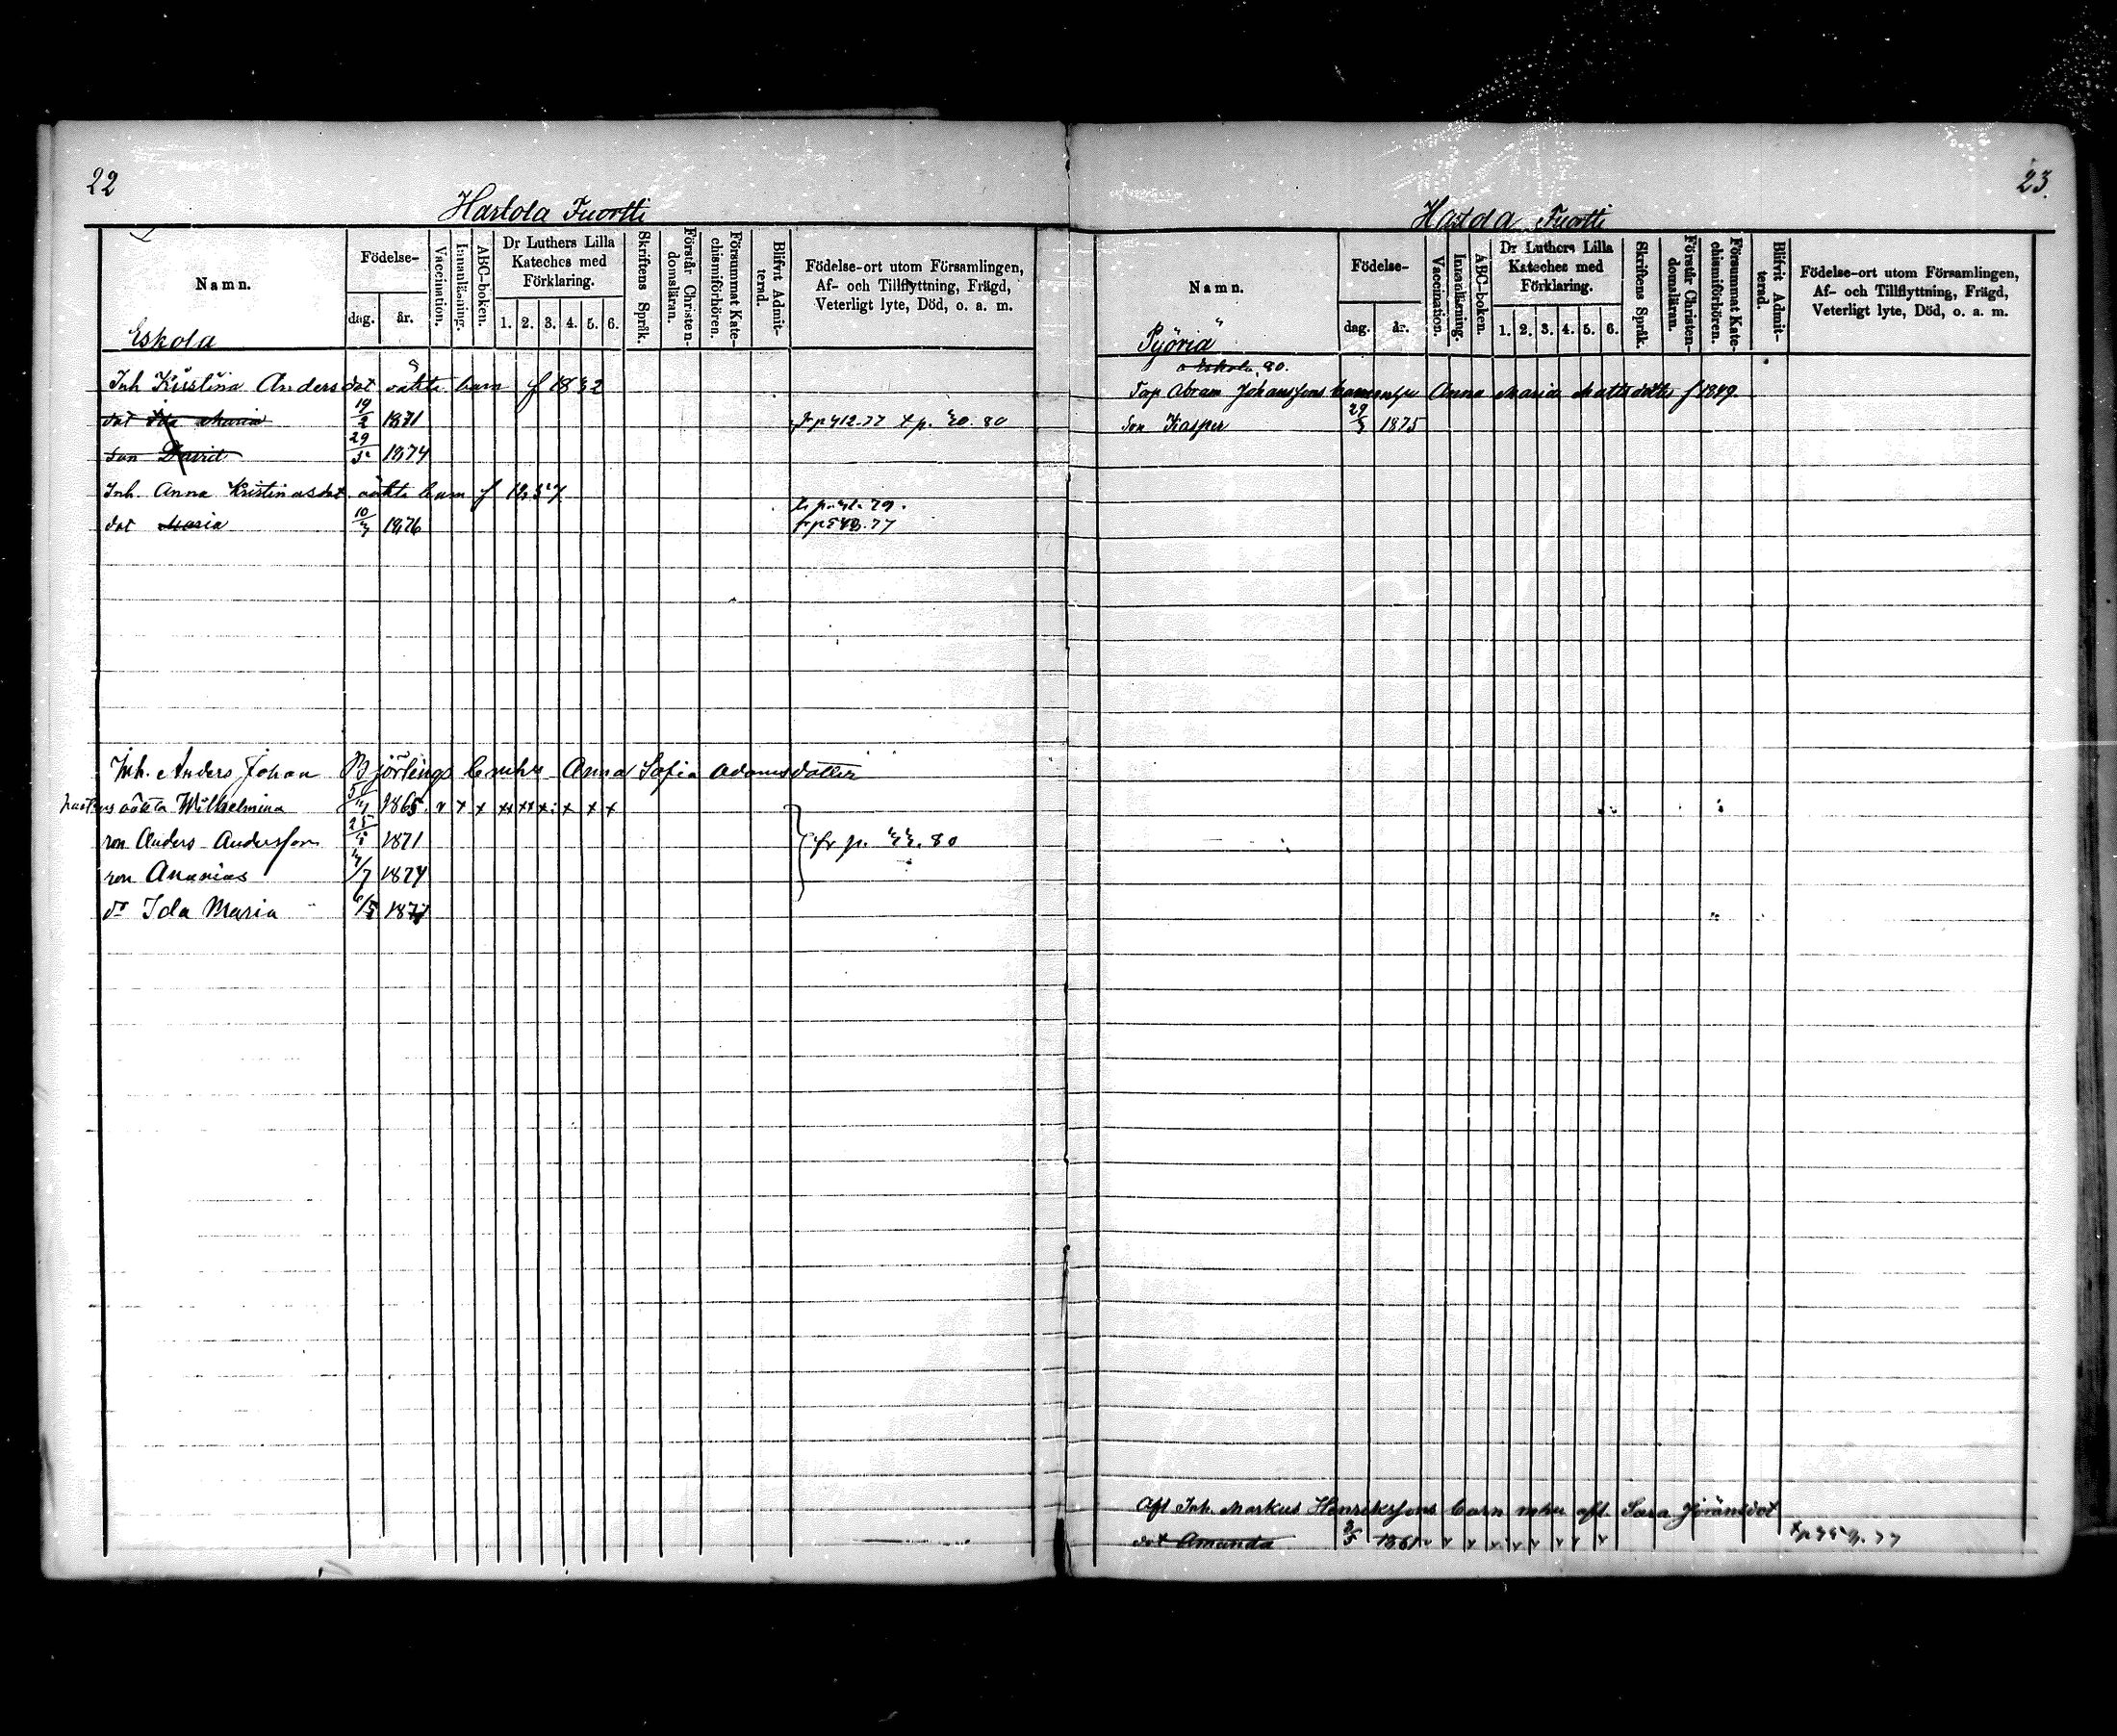 22
Hartola Fuortti
Namn.
Födelse-
dag.
år.
Vaccination.
Innanläsning.
ABC-boken.
Dr Luthers Lilla Kateches med Förklaring.
1. 2. 3. 4. 5. 6.
Skriftens Språk.
Förstår Christendomsläran.
Försummat Katechismiförhören.
Blifvit Admitterad.
Födelse-ort utom Församlingen,
Af- och Tillflyttning, Frägd,
Veterligt lyte, Död, o. a. m.
Eskola
Inh Kristina Andersdot oäkta barn f 1832
dot Ida Maria 19/2 1871
son David 29/5 1874
Inh. Anna Kristinasdot oäkta barn f
dot Maria 10/3 1876
Inh. Anders Johan Björlings b mhu Anna Sofia Adamsdotter
hustrus oäkta Wilhelmina 1865
son Anders Andersson 1871
son Ananias 1874
dr Ida Maria 6/5 1877
fr p. 80
23.
Hartola Fuortti
Namn.
Födelse-
dag.
år.
Vaccination.
Innanläsning.
ABC-boken.
Dr Luthers Lilla Kateches med Förklaring.
1. 2. 3. 4. 5. 6.
Skriftens Språk.
Förstår Christendomsläran.
Försummat Katechismiförhören.
Blifvit Admitterad.
Födelse-ort utom Församlingen,
Af- och Tillflyttning, Frägd,
Veterligt lyte, Död, o. a. m.
Pyöriä
Eskola 80.
Torp Abram Johanssons barn mhu Anna Maria Mattsdotter f 1849.
Son Kasper 29/3 1875
Afl Inh. Markus Henrikssons barn mhu afl. Sara Göransdot
dot Amanda 1861